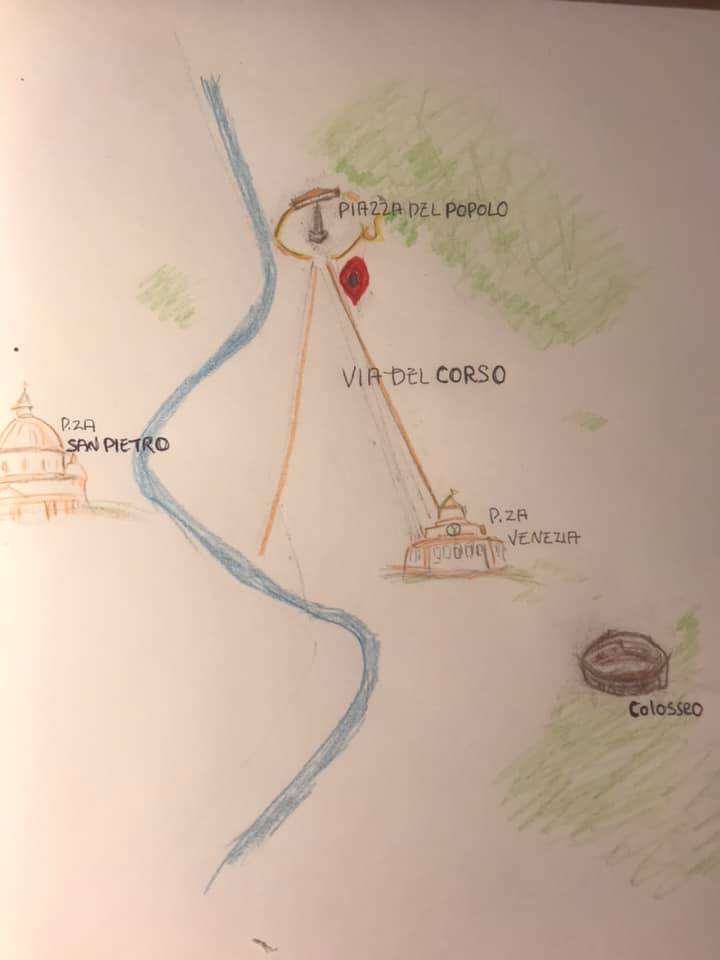 PIAZZA DEL POPOLO
VIA DEL CORSO
P.ZA
SAN PIETRO
P.ZA
VENEZIA
Colosseo